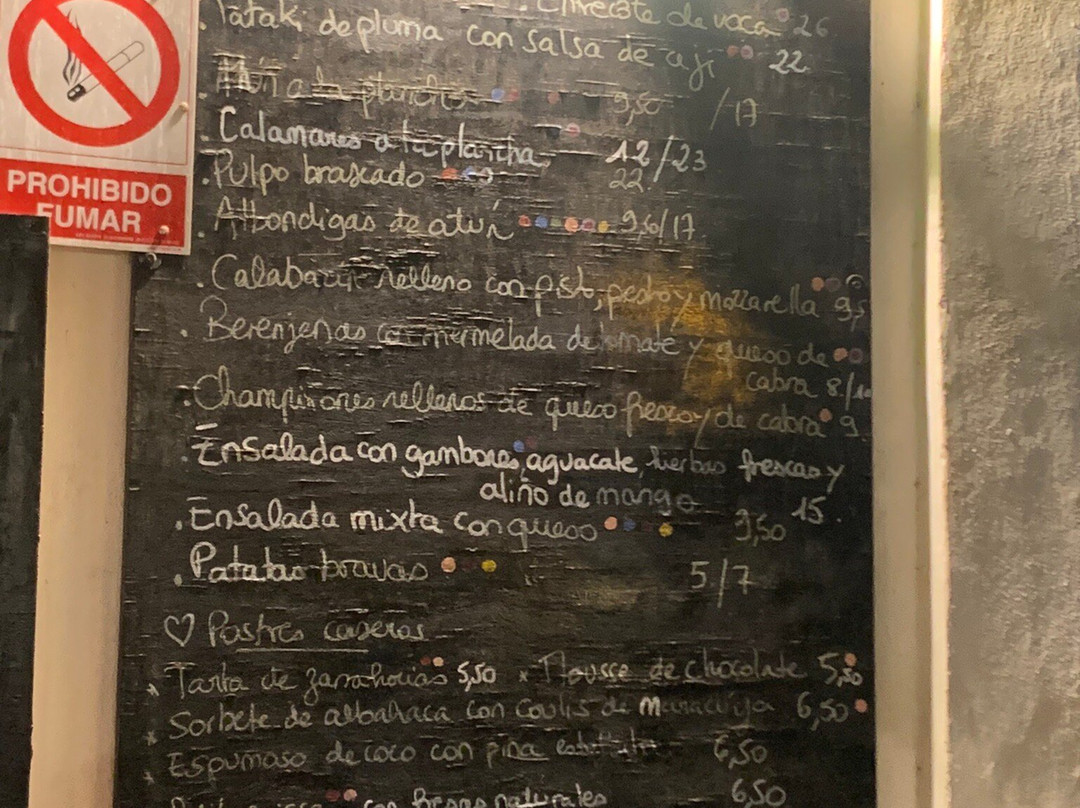 . Entrecote de vaca 26
. Tataki de pluma con salsa de ají 22
a la plancha 9,50 /17
. Calamares a la plancha 12/23
. Pulpo braseado 22
. Albondigas de atún 9,50/17
. Calabacín relleno con pisto, pesto y mozzarella 9,5
. Berenjenas con mermelada de tomate y queso de
cabra 8/
. Champiñones rellenos de queso fresco y de cabra 9
. Ensalada con gambones, aguacate, hierbas frescas y
aliño de mango 15
. Ensalada mixta con queso 9,50
. Patatas bravas 5/7
♡ Postres caseros
Tarta de zanahorias 5,50 Mousse de chocolate 5,50
Sorbete de albahaca con coulis de maracuyja 6,50
Espumoso de coco con piña 6,50
con fresas naturales 6,50
PROHIBIDO
FUMAR